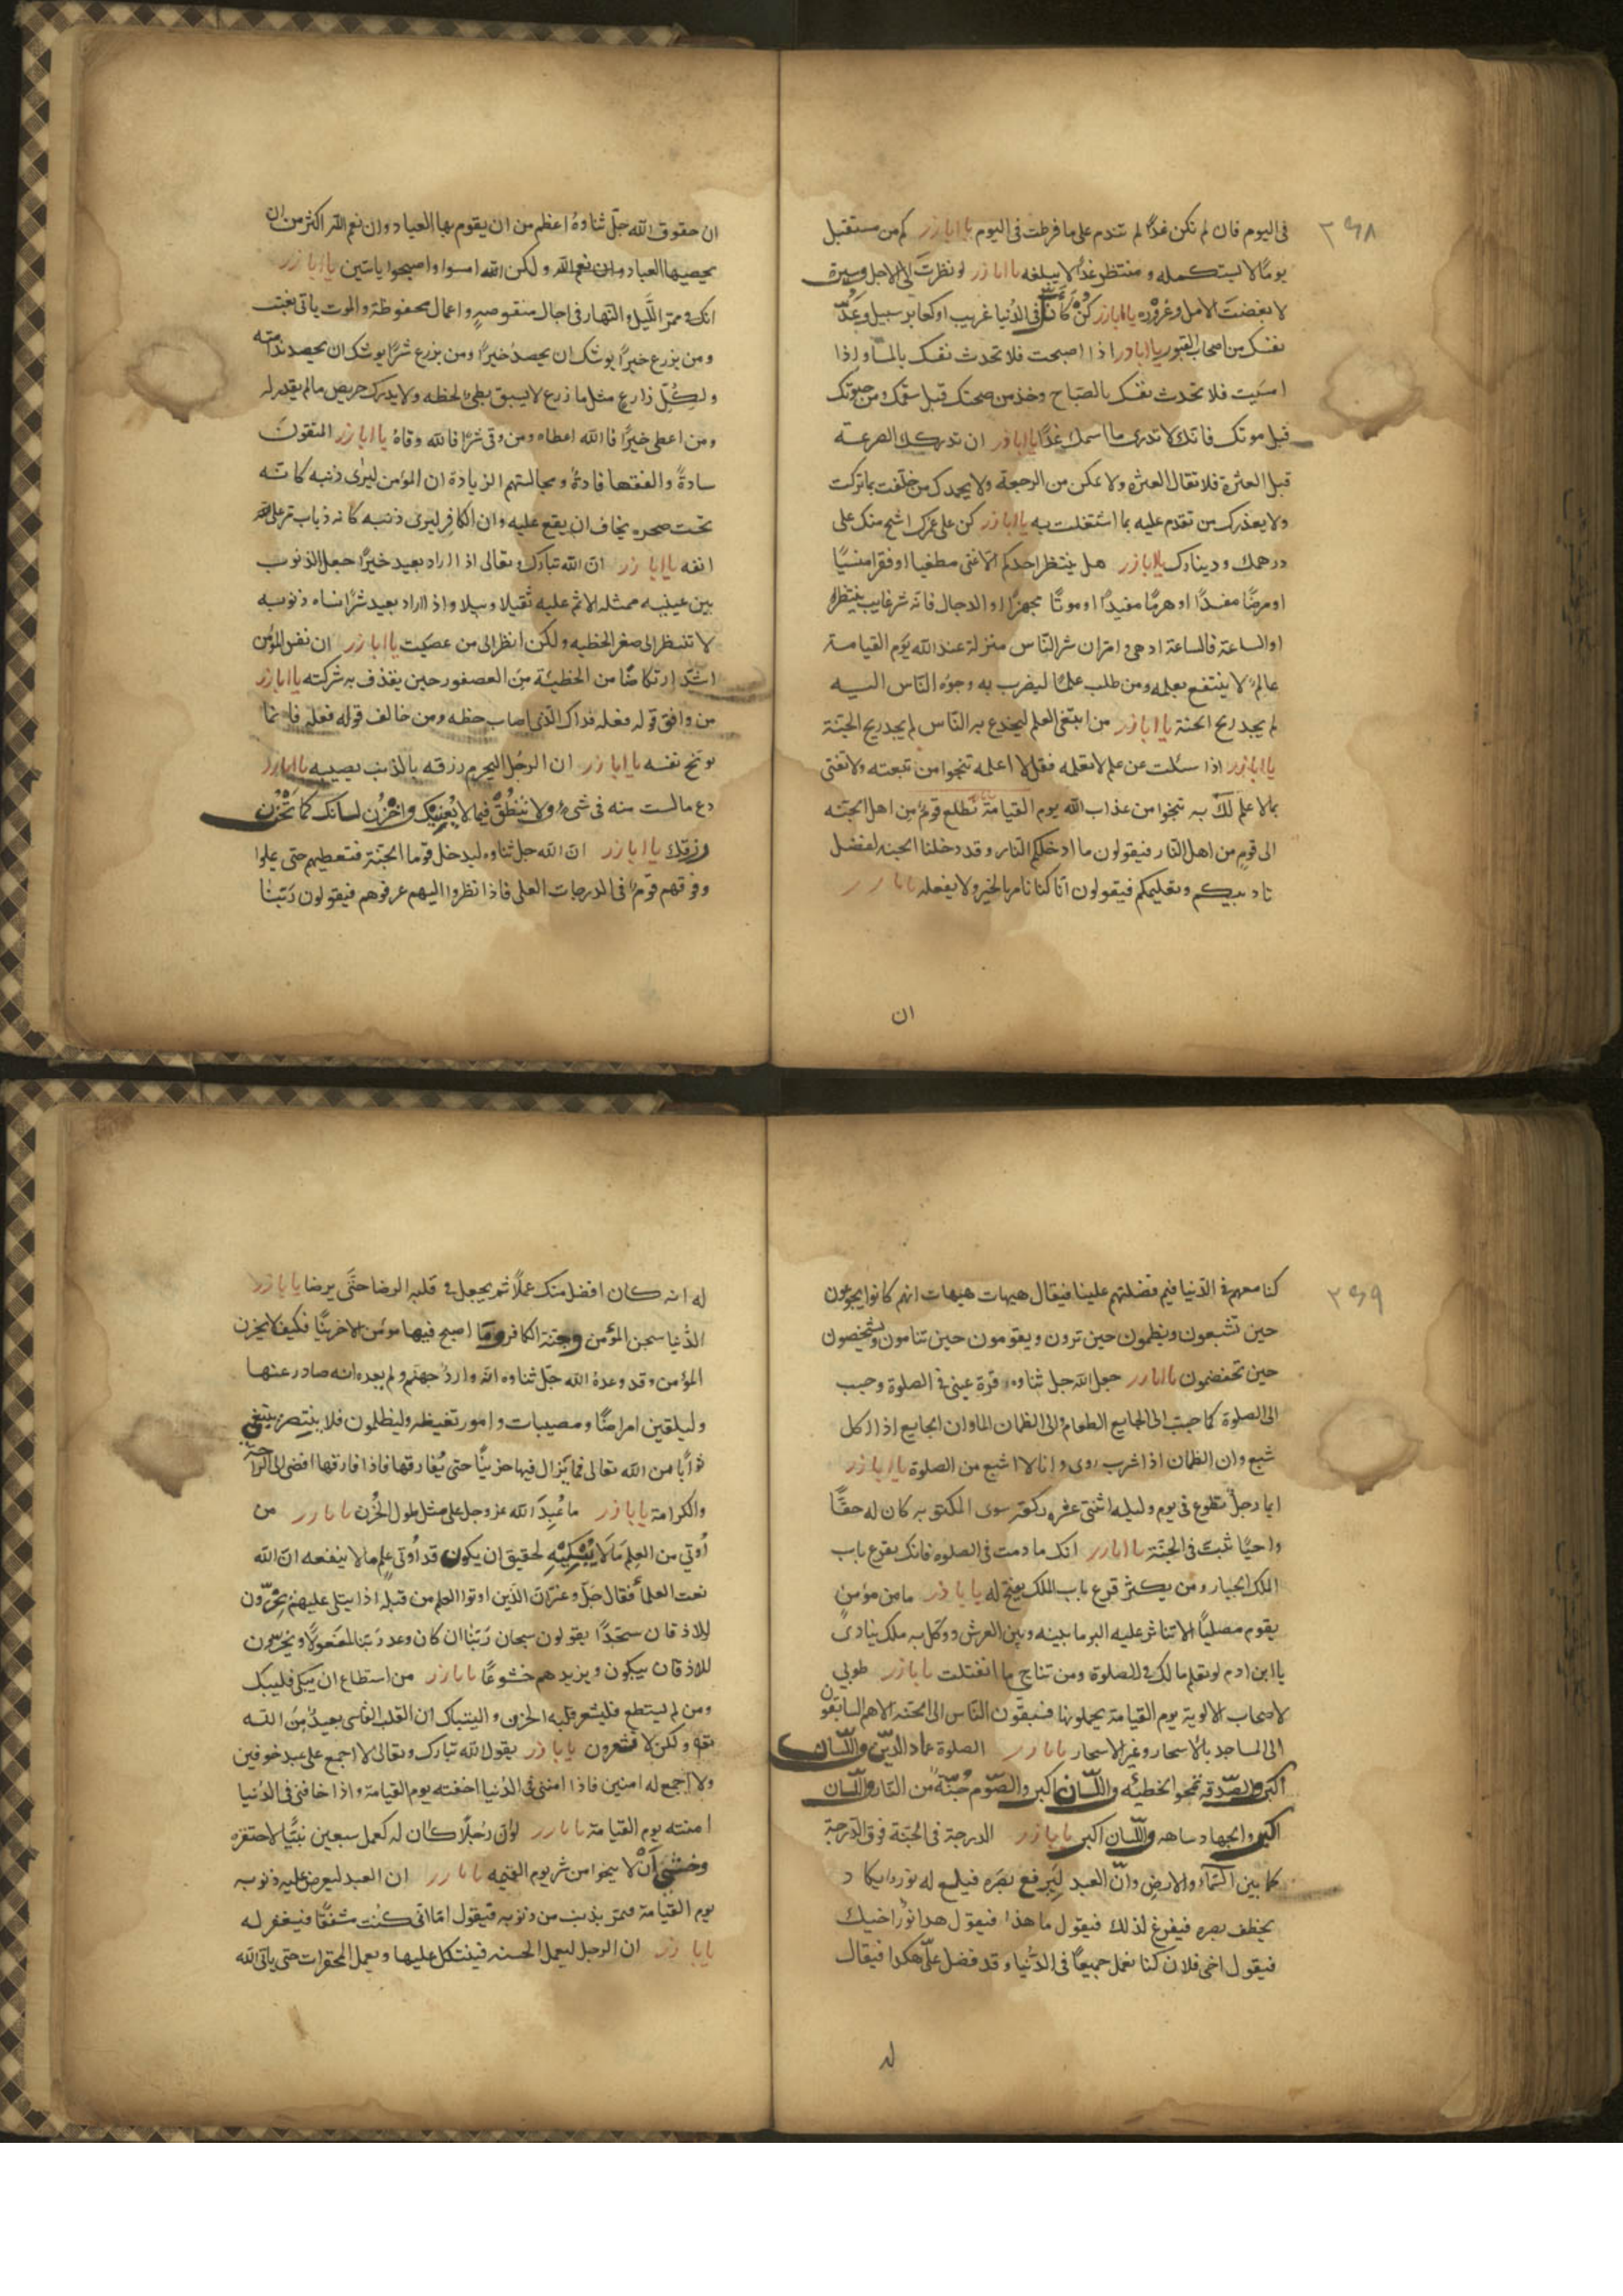 ٢٦٨
فى اليوم فان لم تكن غدًا لم تندم على ما فرطت فى اليوم يا اباذر كم من مستقبل
يومًا لا يستكمله و منتظر غدًا لا يبلغه يا اباذر لو نظرت الى الاجل و مسيره
لا بغضت الامل و غروره يا اباذر كن كانك فى الدنيا غريب او كعابر سبيل و عدّ
نفسك من اصحاب القبور يا اباذر اذا اصبحت فلا تحدث نفسك بالمسا و اذا
امسيت فلا تحدث نفسك بالصباح وخذ من صحتك قبل سقمك و من حيوتك
قبل موتك فانك لا تدرى ما اسمك غدًا يا اباذر ان تدركك الصرعة
قبل العثرة فلا تقال العثرة ولا تمكن من الرجعة ولا يحمدك من خلفت بما تركت
ولا يعذرك من تقدم عليه بما اشتغلت به يا اباذر كن على عمرك اشح منك على
درهمك و دينارك يا اباذر هل ينتظر احدكم الا غنى مطغيا او فقرا منسيًا
او مرضًا مفسدًا او هرمًا مفندًا او موتًا مجهزًا او الدجال فانه شر غايب ينتظر
او الساعة فالساعة ادهى و امر ان شر الناس منزلة عند الله يوم القيامة
عالمٌ لا ينتفع بعلمه ومن طلب علمًا ليصرف به وجوه الناس اليه
لم يجد ريح الجنة يا اباذر من ابتغى العلم ليخدع به الناس لم يجد ريح الجنة
يا اباذر اذا سئلت عن علم لا تعلمه فقل لا اعلمه تنجوا من تبعته ولا تفتى
بما لا علم لك به تنجوا من عذاب الله يوم القيامة تطلع قوم من اهل الجنة
الى قوم من اهل النار فيقولون ما ادخلكم النار وقد دخلنا الجنة لفضل
تاديبكم و تعليمكم فيقولون انا كنا نامر بالخير ولا نفعله يا اباذر
ان
ان حقوق الله جلّ ثناوه اعظم من ان يقوم بها العباد و ان نعم الله اكثر من ان
يحصيها العباد و لكن امسوا و اصبحوا تايبين يا اباذر
انك فى ممر الليل و النهار فى اجال منقوصه و اعمال محفوظة و الموت ياتى بغتة
و من يزرع خيرًا يوشك ان يحصد خيرًا و من يزرع شرًا يوشك ان يحصد ندامة
و لكل زارع مثل ما زرع لا يسبق بطئ لحظه ولا يدرك حريص ما لم يقدر له
و من اعطى خيرًا فالله اعطاه و من وقى شرًا فالله وقاه يا اباذر المتقون
سادة و الفقها قادة و مجالستهم الزيادة ان المؤمن ليرى ذنبه كانه
تحت صخره يخاف ان يقع عليه و ان الكافر ليرى ذنبه كانه ذباب مر على
انفه يا اباذر ان الله تبارك و تعالى اذا اراد بعبد خيرًا جعل الذنوب
بين عينيه ممثله و الاثم عليه ثقيلا وبيلا و اذا اراد بعبد شرًا انساه ذنوبه
لا تنظر الى صغر الخطيه و لكن انظر الى من عصيت يا اباذر ان نفس المؤمن
اشدّ ارتكاضًا من الخطيئة من العصفور حين يقذف به شركته يا اباذر
من وافق قوله فعله فذاك الذى اصاب حظه و من خالف قوله فعله فانما
يوبّخ نفسه يا اباذر ان الرجل ليحرم رزقه بالذنب يصيبه يا اباذر
دع ما لست منه فى شىء ولا تنطق فيما لا يعنيك و اخزن لسانك كما تخزن
رزقك يا اباذر ان الله جل ثناوه ليدخل قوما الجنة فتعطيهم حتى يملوا
و فوقهم قومٌ فى الدرجات العلى فاذا نظروا اليهم عرفوهم فيقولون ربنا
٢٦٩
كنا معهم فى الدنيا فبم فضلتهم علينا فيقال هيهات هيهات انهم كانوا يجوعون
حين تشبعون و يظمون حين تروون و يقومون حين تنامون و يشخصون
حين تخفضون يا اباذر جعل الله جل ثناوه قرة عينى فى الصلوة و حبب
الى الصلوة كما حبب الى الجايع الطعام و الى الظمان الما و ان الجايع اذا اكل
شبع و ان الظمان اذا شرب روى و انا لا اشبع من الصلوة يا اباذر
ايما رجل تطوع فى يوم و ليله اثنتى عشره ركعة سوى المكتوبه كان له حقًا
واجبًا بيت فى الجنة يا اباذر انك ما دمت فى الصلوه فانك تقرع باب
الملك الجبار و من يكثر قرع باب الملك يفتح له يا اباذر ما من مؤمن
يقوم مصليًا الا تناثر عليه البر ما بينه و بين العرش و وكل به ملك ينادى
يا ابن ادم لو تعلم ما لك فى الصلوة و من تناجى ما انفتلت يا اباذر طوبى
لاصحاب الالوية يوم القيامة يحملونها فيسبقون الناس الى الجنه الا هم السابقون
الى المساجد بالاسحار و غير الاسحار يا اباذر الصلوة عماد الدين و اللسان
اكبر و الصدقه تمحوا الخطيئه و اللسان اكبر و الصوم جُنّة من النار و اللسان
اكبر و الجهاد ساهه و اللسان اكبر يا اباذر الدرجة فى الجنة فوق الدرجة
كما بين السماء و الارض و ان العبد ليرفع بصره فيلمع له نور يكاد
يخطف بصره فيفزع لذلك فيقول ما هذا فيقول هذا نور اخيك
فيقول اخى فلان كنا نعمل جميعًا فى الدنيا و قد فضل علىّ هكذا فيقال
له
له انه كان افضل منك عملًا ثم يجعل فى قلبه الرضا حتى يرضا يا اباذر
الدنيا سجن المؤمن و جنة الكافر و ما اصبح فيها مؤمن الا حزينًا فكيف لا يحزن
المؤمن و قد وعده الله جلّ ثناوه انه واردُ جهنم و لم يعده انه صادر عنها
و ليلقين امراضًا و مصيبات و امور تغيظه و ليظلمون فلا ينتصر يبتغى
ثوابًا من الله تعالى فما يزال فيها حزينًا حتى يفارقها فاذا فارقها افضى الى الراحة
والكرامة يا اباذر ما عُبِدَ الله عز وجل على مثل طول الحُزن يا اباذر من
أوتي من العلم ما لا يُبكيه لحقيق ان يكون قد أوتى علم ما لا ينفعه ان الله
نعت العلماء فقال جلّ و عز ان الذين اوتوا العلم من قبله اذا يتلى عليهم يخرّون
للاذقان سجّدًا و يقولون سبحان ربنا ان كان وعد ربنا لمفعولًا و يخرّون
للاذقان يبكون و يزيدهم خشوعًا يا اباذر من استطاع ان يبكى فليبك
و من لم يستطع فليشعر قلبه الحزن و اليتباك ان القلب القاسى بعيدٌ من الله
و لكن لا تشعرون يا اباذر يقول الله تبارك و تعالى لا اجمع على عبد خوفين
و لا اجمع له امنين فاذا امننى فى الدنيا اخفته يوم القيامة و اذا خافنى فى الدنيا
امنته يوم القيامة يا اباذر لو ان رجلًا كان له كعمل سبعين نبيًا لاحتقره
وخشى أنْ لا ينجوا من شر يوم القيمه يا اباذر ان العبد ليعرض عليه ذنوبه
يوم القيامة فيمر بذنب من ذنوبه فيقول اما انى كنت مشفقًا فيغفر له
يا اباذر ان الرجل ليعمل الحسنه فيتكل عليها و يعمل المحقرات حتى ياتى الله